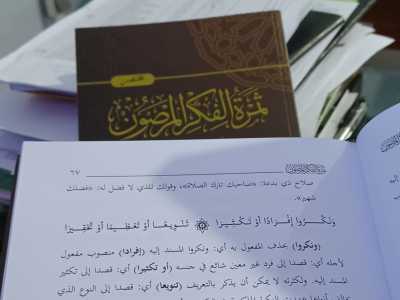 ثمرة الفكر المصون
٦٧
صلاح ذي بدعة: «صاحبك تارك الصلاة»، وقولك للذي لا فضل له: «فضلك
شهير».
وَنَكَّرُوا إِفْرَادًا أَوْ تَكْثِيرًا تَنْوِيعًا أَوْ تَعْظِيمًا أَوْ تَحْقِيرًا
(ونكروا) حذف المفعول به أي: ونكروا المسند إليه (إفرادا) منصوب مفعول
لأجله أي: قصدا إلى فرد غير معين شائع في جنسه (أو تكثيرا) أي: قصدا إلى تكثير
المسند إليه. ولكثرته لا يمكن أن يذكر بالتعريف (تنويعا) أي: قصدا إلى النوع الذي